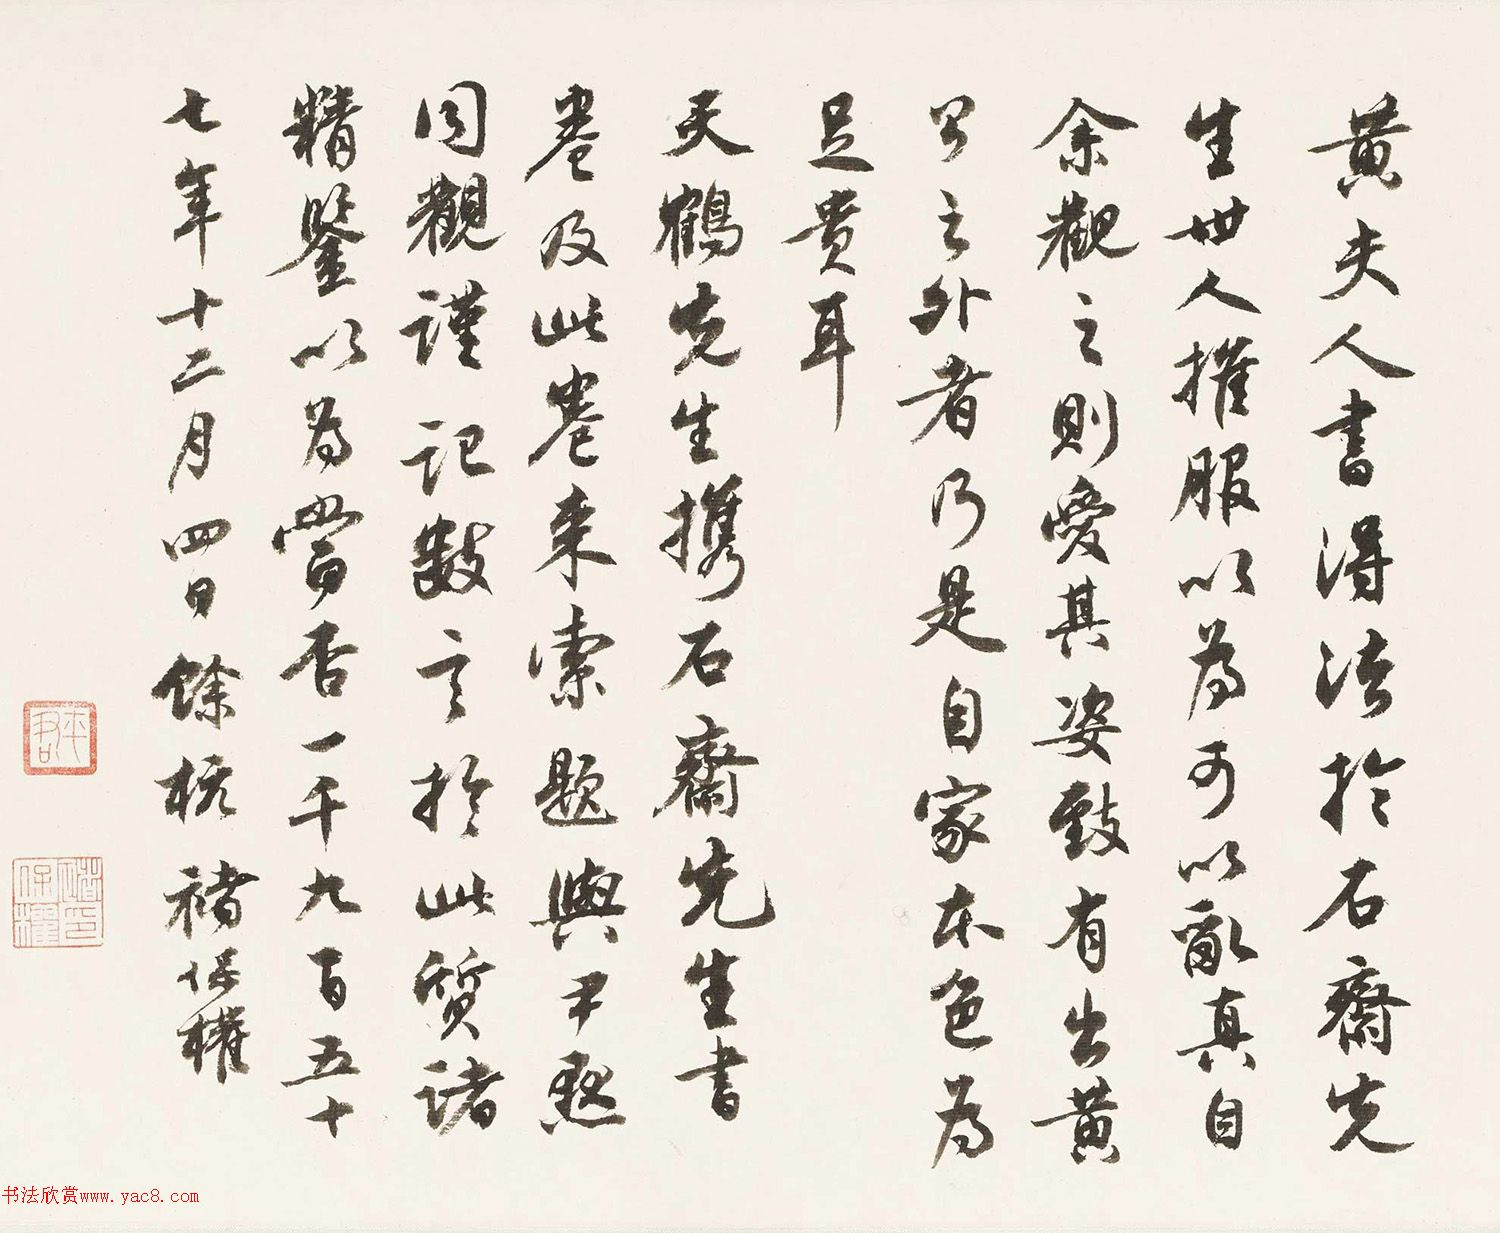 黄夫人書得法於石齋先
生世人摧服以為可以亂真自
余觀之則愛其姿致有出黄
公之外者乃是自家本色為
足貴耳
天鶴先生携石齋先生書
卷及此卷来索題與尹默
同觀謹記數言於此質諸
精鑒以為當否一千九百五十
七年十二月四日餘杭褚保權
褚保權印
书法欣赏www.yac8.com